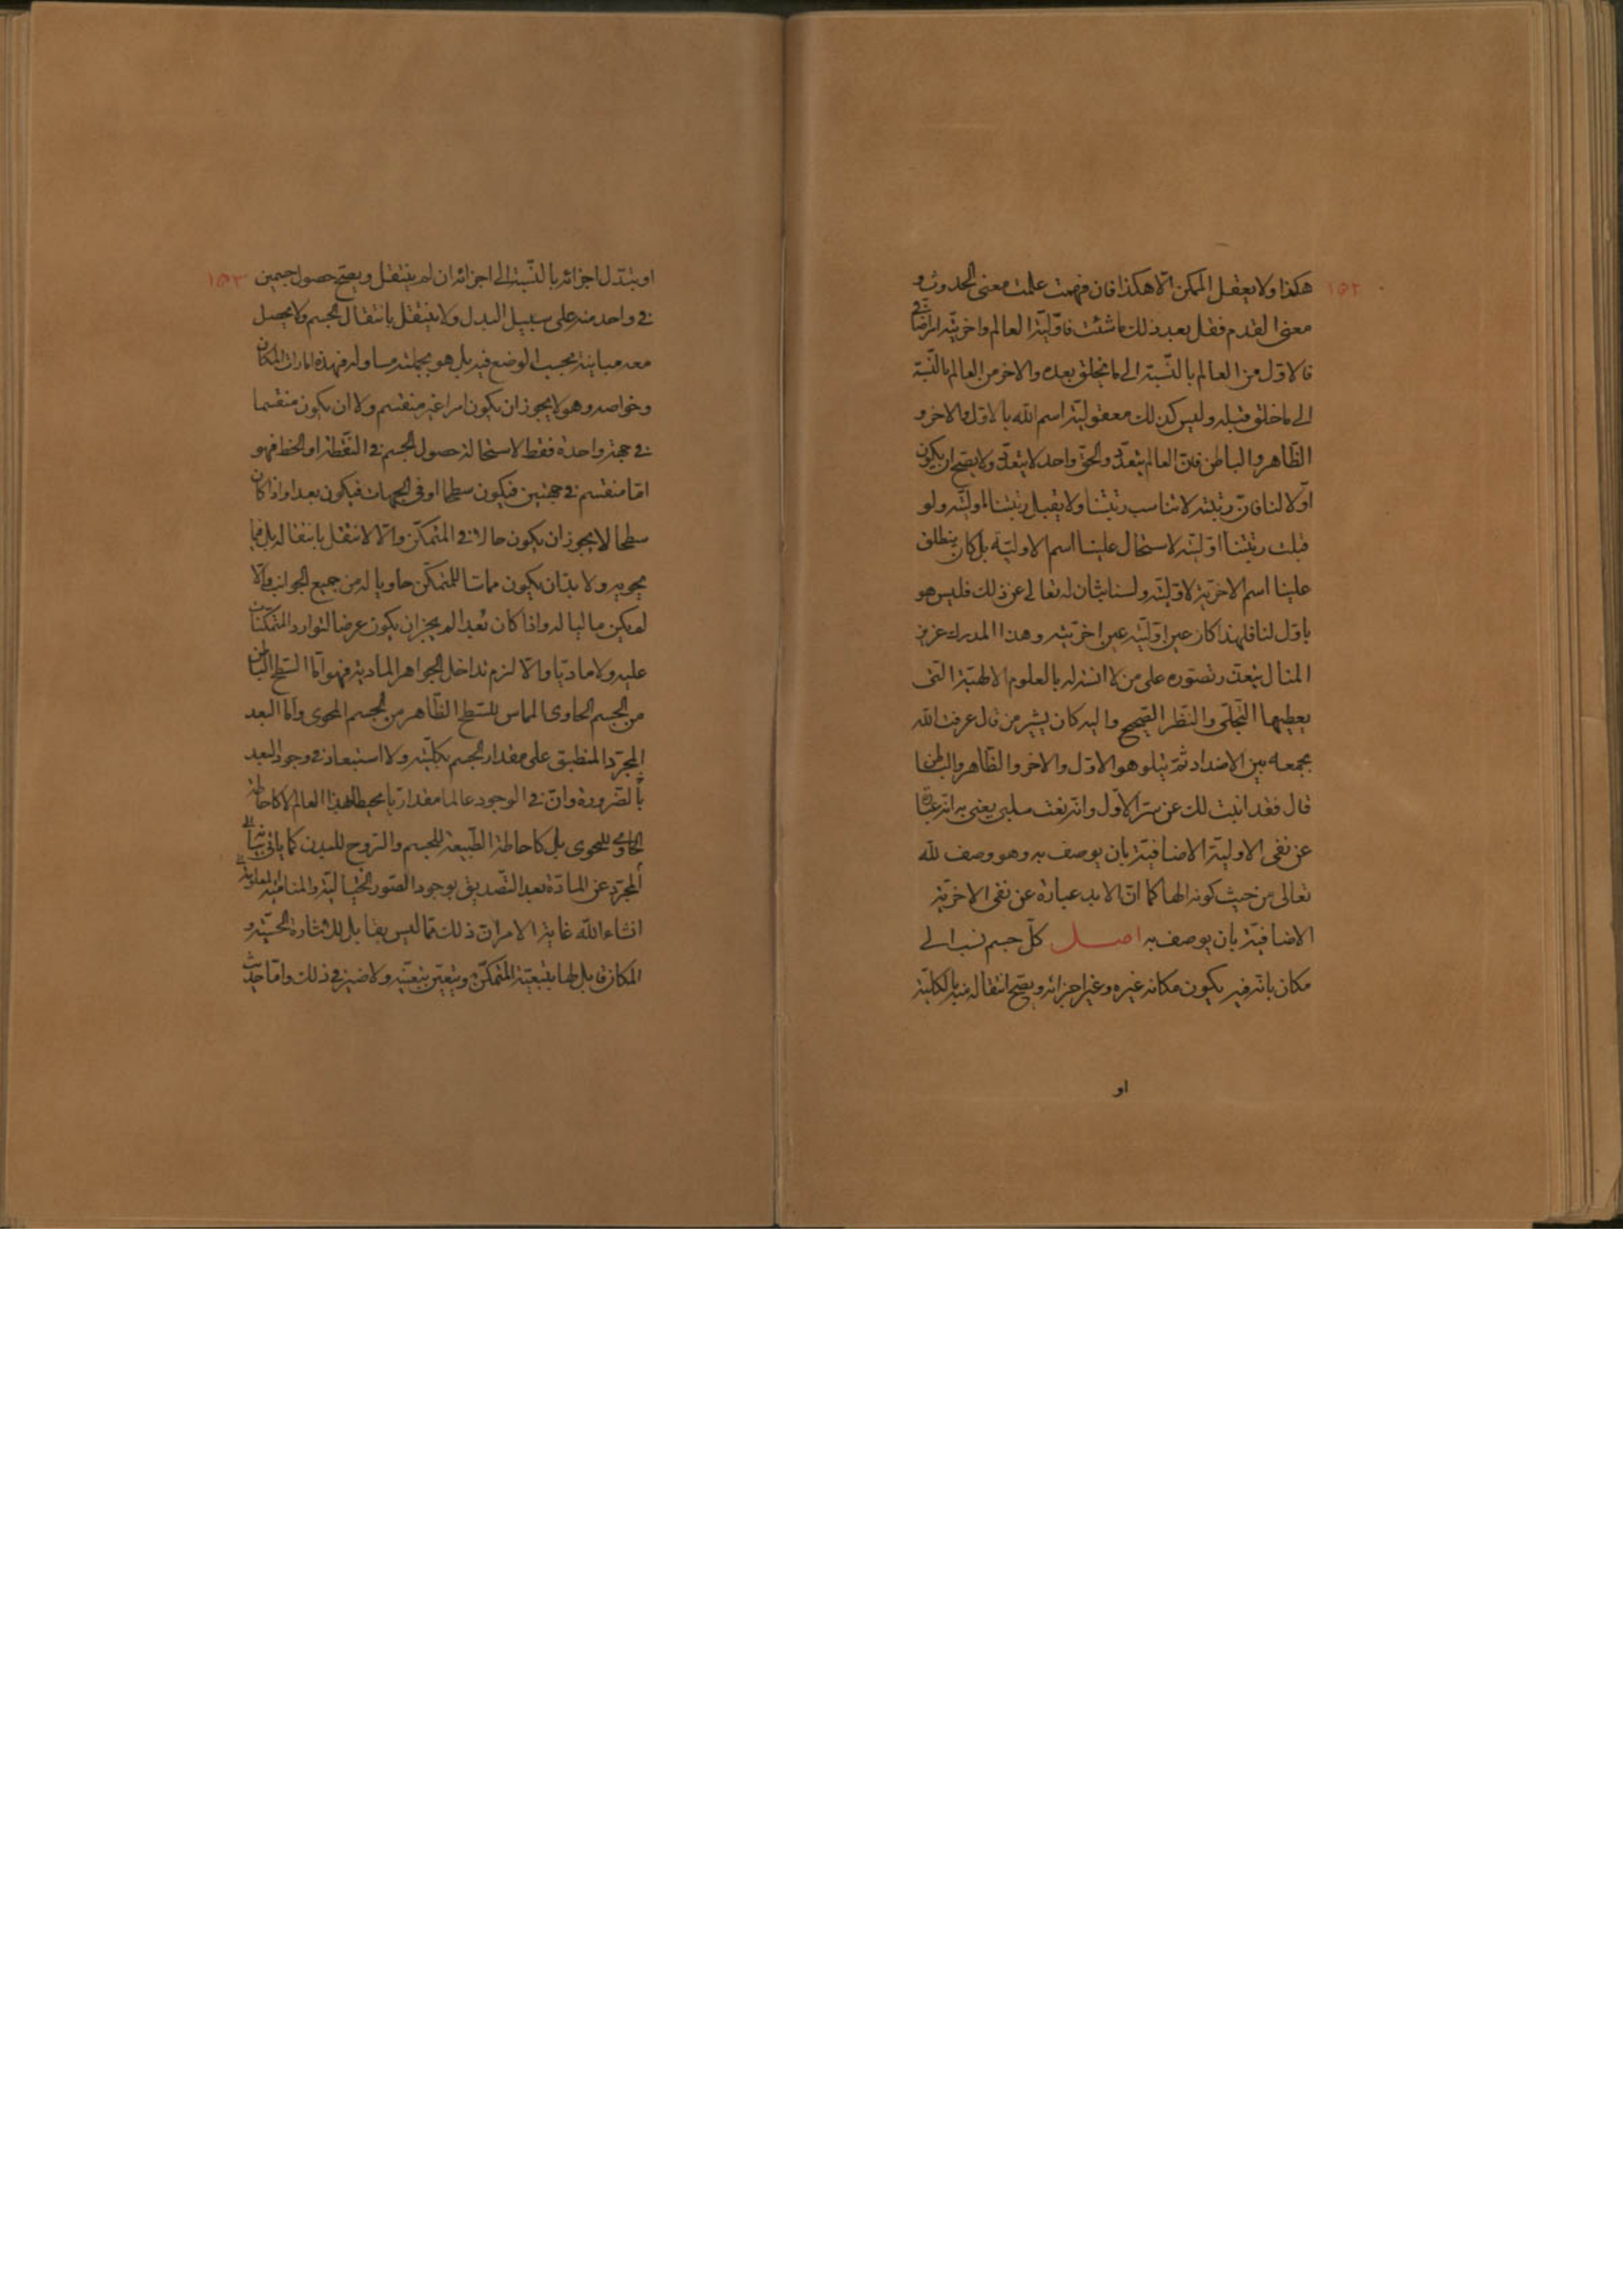 ١٥٢
هكذا ولا يعقل الممكن الّا هكذا فان فهمت علمت معنى الحدوث و
معنى القدم فقل بعد ذلك ما شئت فاوّليّة العالم واخريّته امر اضافى
فالاوّل من العالم بالنّسبة الى ما يخلق بعده والاخر من العالم بالنّسبة
الى ما خلق قبله وليس كذلك معقوليّة اسم الله بالاوّل والاخر و
الظّاهر والباطن فانّ العالم يتعدّد والحقّ واحد لا يتعدّد ولا يصحّ ان يكون
اوّلا لنا فانّ رتبته لا تناسب رتبتنا ولا تقبل رتبتنا اوليّته ولو
قبلت رتبتنا اوّليّته لاستحال علينا اسم الاوليّة بل كان ينطلق
علينا اسم الاخريّة لاوّليّته ولسنا بثان له تعالى عن ذلك فليس هو
باوّل لنا فلهذا كان عين اوّليّته عين اخريّته وهذا المدرك عزيز
المنال يتعذّر تصوّره على من لا انسة له بالعلوم الالهيّة الّتى
يعطيها التّجلّى والنّظر الصّحيح واليه كان يشير من قال عرفت الله
بجمعه بين الاضداد ثمّ يتلو هو الاوّل والاخر والظّاهر والباطن
قال فقد ابنت لك عن سرّ الاوّل وانّه نعت سلبى يعنى به انّه عبارة
عن نفى الاوليّة الاضافيّة بان يوصف به وهو وصف لله
تعالى من حيث كونه الها كما انّ الابد عبارة عن نفى الاخريّة
الاضافيّة بان يوصف به اصل كلّ جسم نسب الى
مكان بانّه فيه يكون مكانه غيره وغير اجزائه ويصحّ انتقاله منه بالكليّة
او
١٥٣
او يتبدّل اجزائه بالنّسبة الى اجزائه ان لم ينتقل ويصحّ حصول جسمين
فى واحد منه على سبيل البدل ولا ينتقل بانتقال الجسم ولا يحصل
معه مباينة بحسب الوضع فيه بل هو بجملته مساو له فهذه امارات المكان
وخواصه وهو لا يجوز ان يكون امرا غير منقسم ولا ان يكون منقسما
فى جهة واحدة فقط لاستحالة حصول الجسم فى النّقطة او الخط فهو
امّا منقسم فى جهتين فيكون سطحا او فى الجهات فيكون بعدا واذا كان
سطحا لا يجوز ان يكون حالا فى المتمكّن والّا لانتقل بانتقاله بل فيما
يحويه ولا بدّ ان يكون مماسّا للمتمكّن حاويا له من جميع الجوانب والّا
لم يكن ماليا له واذا كان بُعدا لم يجز ان يكون عرضا لتوارد المتمكّنات
عليه ولا مادّيا والّا لزم تداخل الجواهر المادية فهو امّا السّطح الباطن
من الجسم الحاوى المماس للسّطح الظّاهر من الجسم المحوى وامّا البعد
المجرّد المنطبق على مقدار الجسم بكلّيّته ولا استبعاد فى وجود البعد
بالضّرورة وانّ فى الوجود عالما مقداريّا محيطا بهذا العالم لا كاحاطة
الحاوى للمحوى بل كاحاطة الطّبيعة للجسم والرّوح للبدن كما ياتى بيانه
المجرّد عن المادّة بعد التّصديق بوجود الصّور الخياليّة والمناميّة
انشاء الله غاية الامر انّ ذلك ممّا ليس يقابل للاشارة الحسّيّة و
المكان قابل لها بتبعيّة المتمكّن ويتعيّن بتعيّنه ولا ضير فى ذلك وامّا حديث